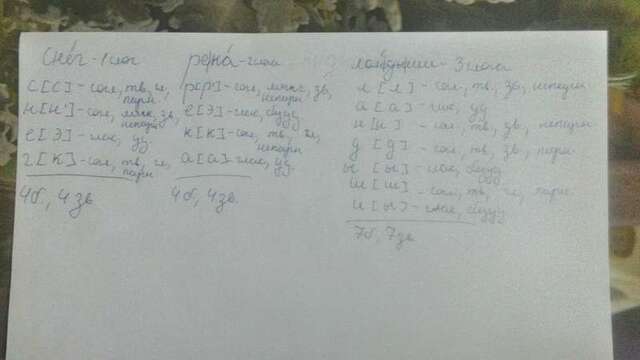 снег - 1 слог
с [с] - сог, тв, гл,
парн
н [н'] - сог, мягк, зв,
непарн
е [э] - глас, уд.
г [к] - сог, тв, гл,
парн
4б, 4 зв
река -
р [р'] - сог, мягк, зв,
непарн
е [э] - глас, безуд
к [к] - сог, тв, гл,
непарн
а [а] - глас, уд.
4б, 4 зв.
- 3 слога
л [л] - сог, тв, зв, непарн
а [а] - глас, уд
н [н] - сог, тв, зв, непарн
д [д] - сог, тв, зв, парн
ы [ы] - глас, безуд
ш [ш] - сог, тв, гл, парн
и [ы] - глас, безуд
7б, 7 зв